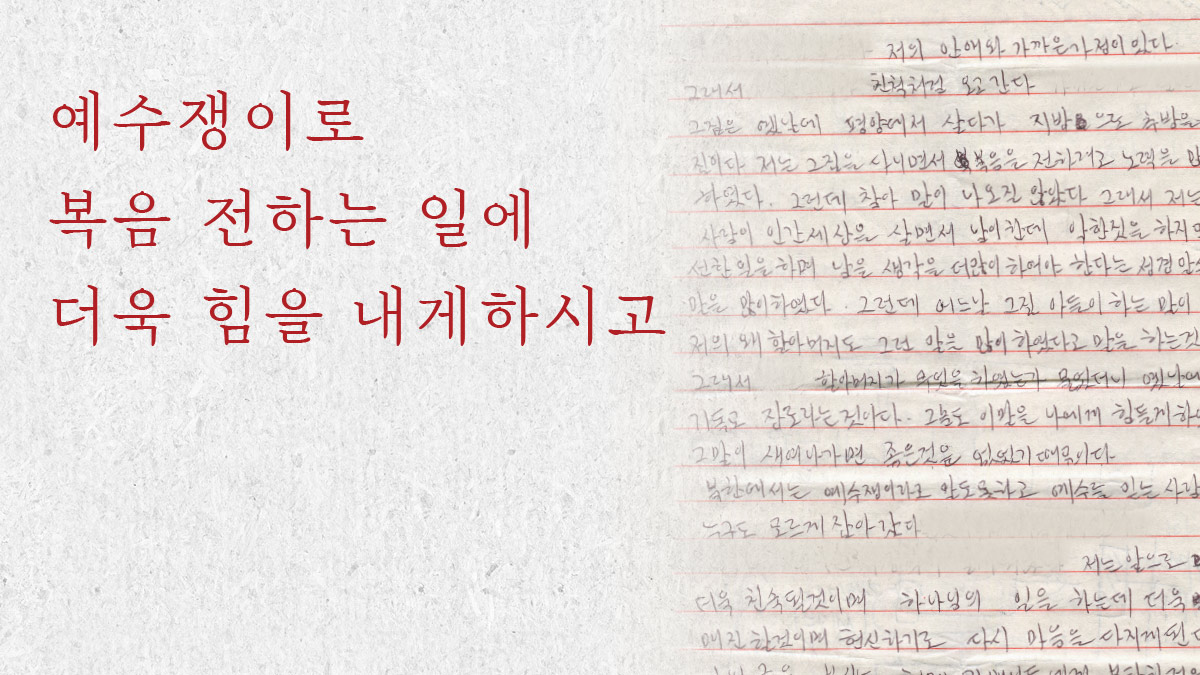 예수쟁이로
복음 전하는 일에
더욱 힘을 내게하시고
저의 안애와 가까운가정이있다.
그래서 친척처럼 오고간다
그집은 옛날에 평양에서 살다가 지방으로 추방을
진이다 저는 그집을 사니면서 복음을 전하게로 노력을
하였다. 그런데 참아 말이 나오질 않았다 그래서 저는
사람이 인간세상을 살면서 남이한테 악한짓을 하지
선한일을하며 남을 생각을 더많이하여야 한다는 성경
말을 많이하였다. 그런데 어느날 그집 아들이 하는 말이
저의 왜할아버지도 그런 말을 많이하였다고 말을 하는것
그래서 할아버지가 무엇을 하였는가 물었더니 옛날에
기독교 장로라는것이다. 그분도 이말을 나에게 힘들게
그말이 새여나가면 좋은것을 없었기때문이다.
북한에서는 예수쟁이라고 말도못하고 예수를 믿는사람
누구도 모르게 잡아갔다
저는앞으로
더욱 친숙될것이며 하나님의 일을 하는데 더욱
매진할것이며 헌신하기로 다시 마음을 다지게된다